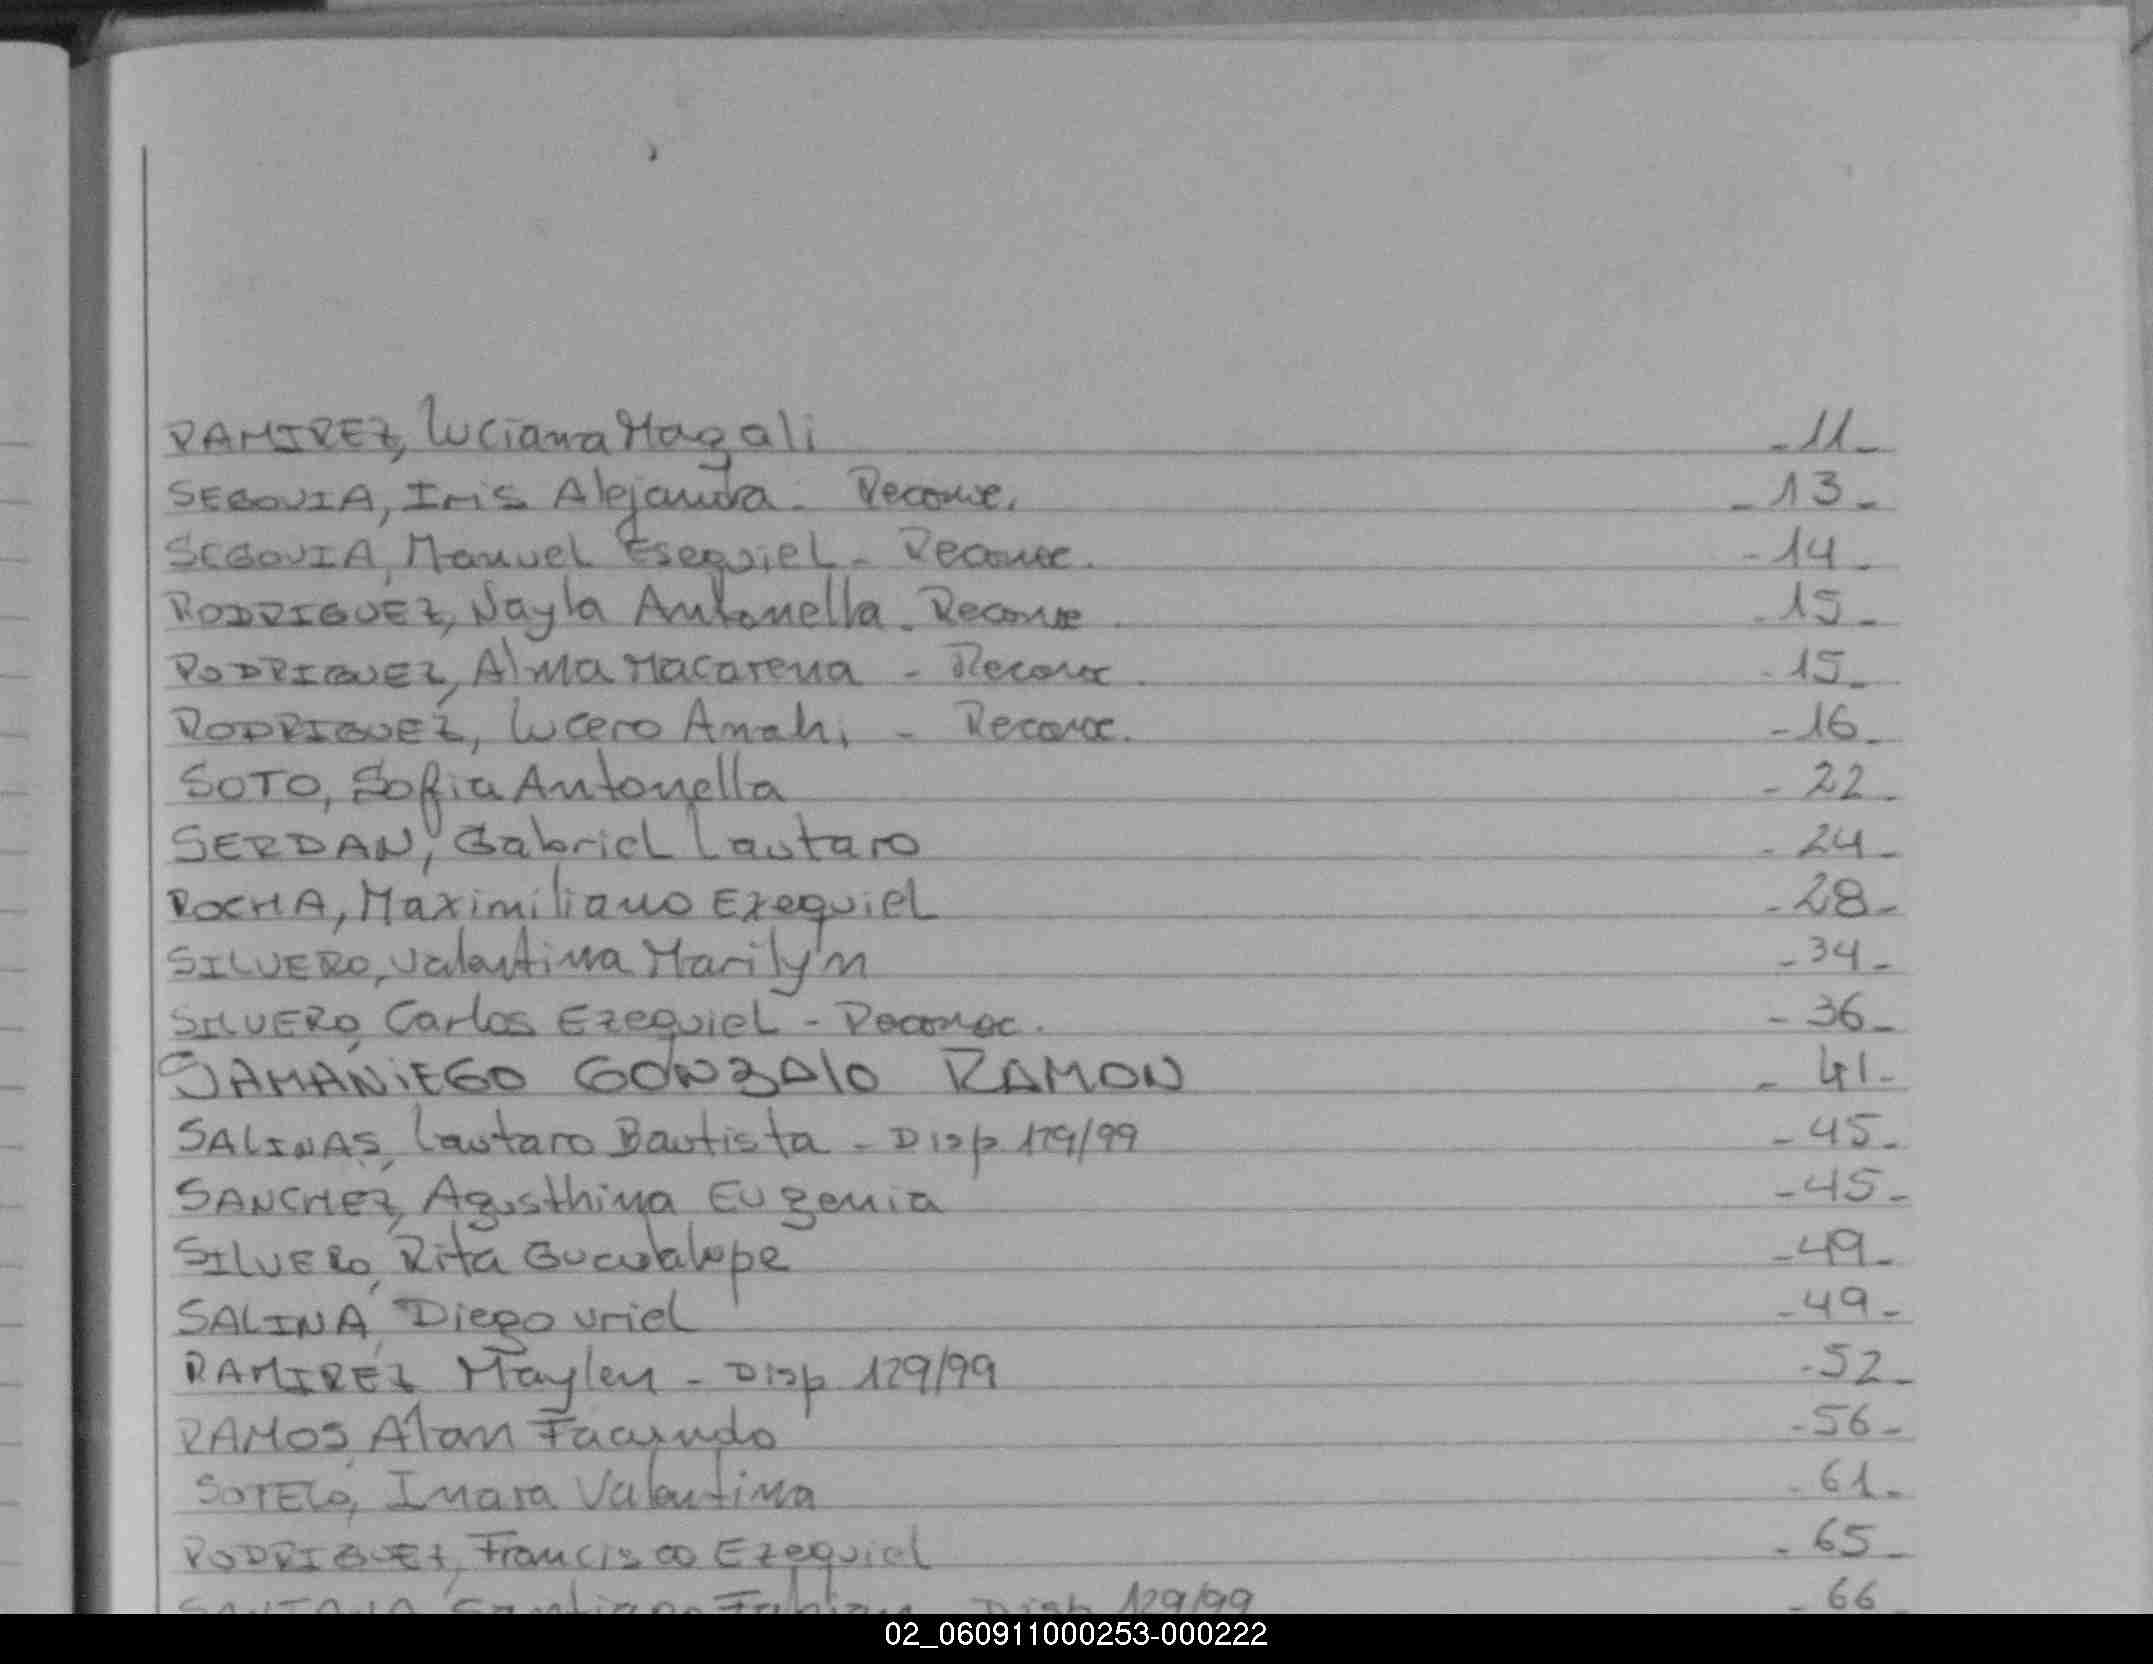 RAMIREZ, Luciana Magali -11-
SEGOVIA, Iris Alejandra - Reconoc. -13-
SEGOVIA, Manuel Esequiel - Reconoc. -14-
RODRIGUEZ, Nayla Antonella - Reconoc -15-
RODRIGUEZ, Alma Macarena - Reconoc -15-
RODRIGUEZ, Lucero Anahi - Reconoc. -16-
SOTO, Sofia Antonella -22-
SERDAN, Gabriel Lautaro -24-
ROCHA, Maximiliano Ezequiel -28-
SILVERO, Valentina Marilyn -34-
SILVERO, Carlos Ezequiel - Reconoc. -36-
SAMANIEGO GONZALO RAMON -41-
SALINAS, Lautaro Bautista - Disp 129/99 -45-
SANCHEZ, Agusthina Eugenia -45-
SILVERO, Rita Guadalupe -49-
SALINA, Diego Uriel -49-
RAMIREZ Maylen - Disp 129/99 -52-
RAMOS, Alan Facundo -56-
SOTELO, Inara Valentina -61-
RODRIGUEZ, Francisco Ezequiel -65-
SANTANA Santiago Fabian - Disp 129/99 -66-
02_060911000253-000222